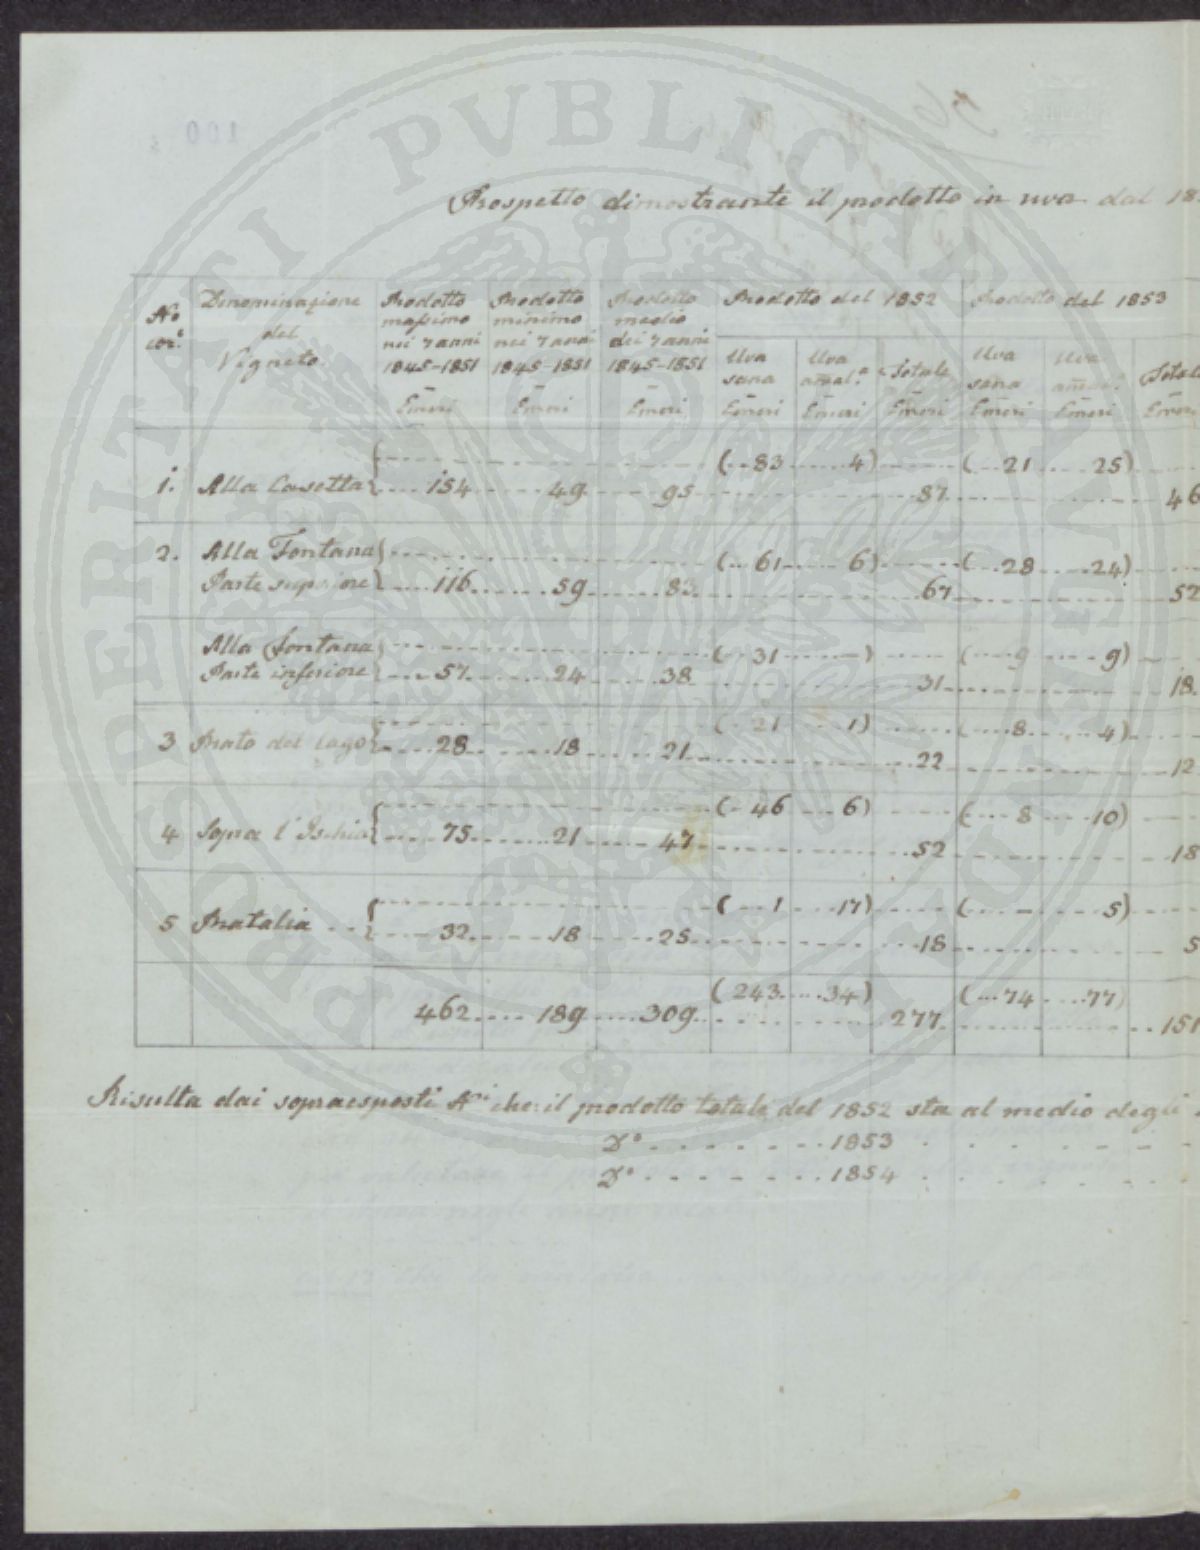 PROSPERITATI PUBLICAE AUGENDAE
100
Prospetto dimostrante il prodotto in uva dal 18
No cor.e Denominazione del Vigneto Prodotto massimo nei 7 anni 1845-1851 Emeri Prodotto minimo nei 7 anni 1845-1851 Emeri Prodotto medio dei 7 anni 1845-1851 Emeri Prodotto del 1852 Prodotto del 1853
Uva sana Emeri Uva amal.a Emeri Totale Emeri Uva sana Emeri Uva amal.a Emeri Totale Emeri
(--83 ---- 4) ---- (---21 ---- 25)
1. Alla Casetta ---- 154 ---- 49 ---- 95 ---- 87 ---- 46
2. Alla Fontana ---- (--- 61 ---- 6) ---- (---28 ---- 24)
Parte superiore ---- 116 ---- 59 ---- 83 ---- 67 ---- 52
Alla Fontana ---- (-- 31 ---- -) ---- (---- 9 ---- 9)
Parte inferiore ---- 57 ---- 24 ---- 38 ---- 31 ---- 18
(-- 21 ---- 1) ---- (---- 8 ---- 4)
3 Prato del Lago ---- 28 ---- 18 ---- 21 ---- 22 ---- 12
(-- 46 ---- 6) ---- (---- 8 ---- 10)
4 Sopra l'Ischia ---- 75 ---- 21 ---- 47 ---- 52 ---- 18
(--- 1 ---- 17) ---- (---- - ---- 5)
5 Pratalia ---- 32 ---- 18 ---- 25 ---- 18 ---- 5
(243 ---- 34) (---74 ---- 77)
462 ---- 189 ---- 309 ---- 277 ---- 151
Risulta dai sopraesposti Ni che il prodotto totale del 1852 sta al medio degli
Do - - - - - - - 1853
Do - - - - - - - 1854